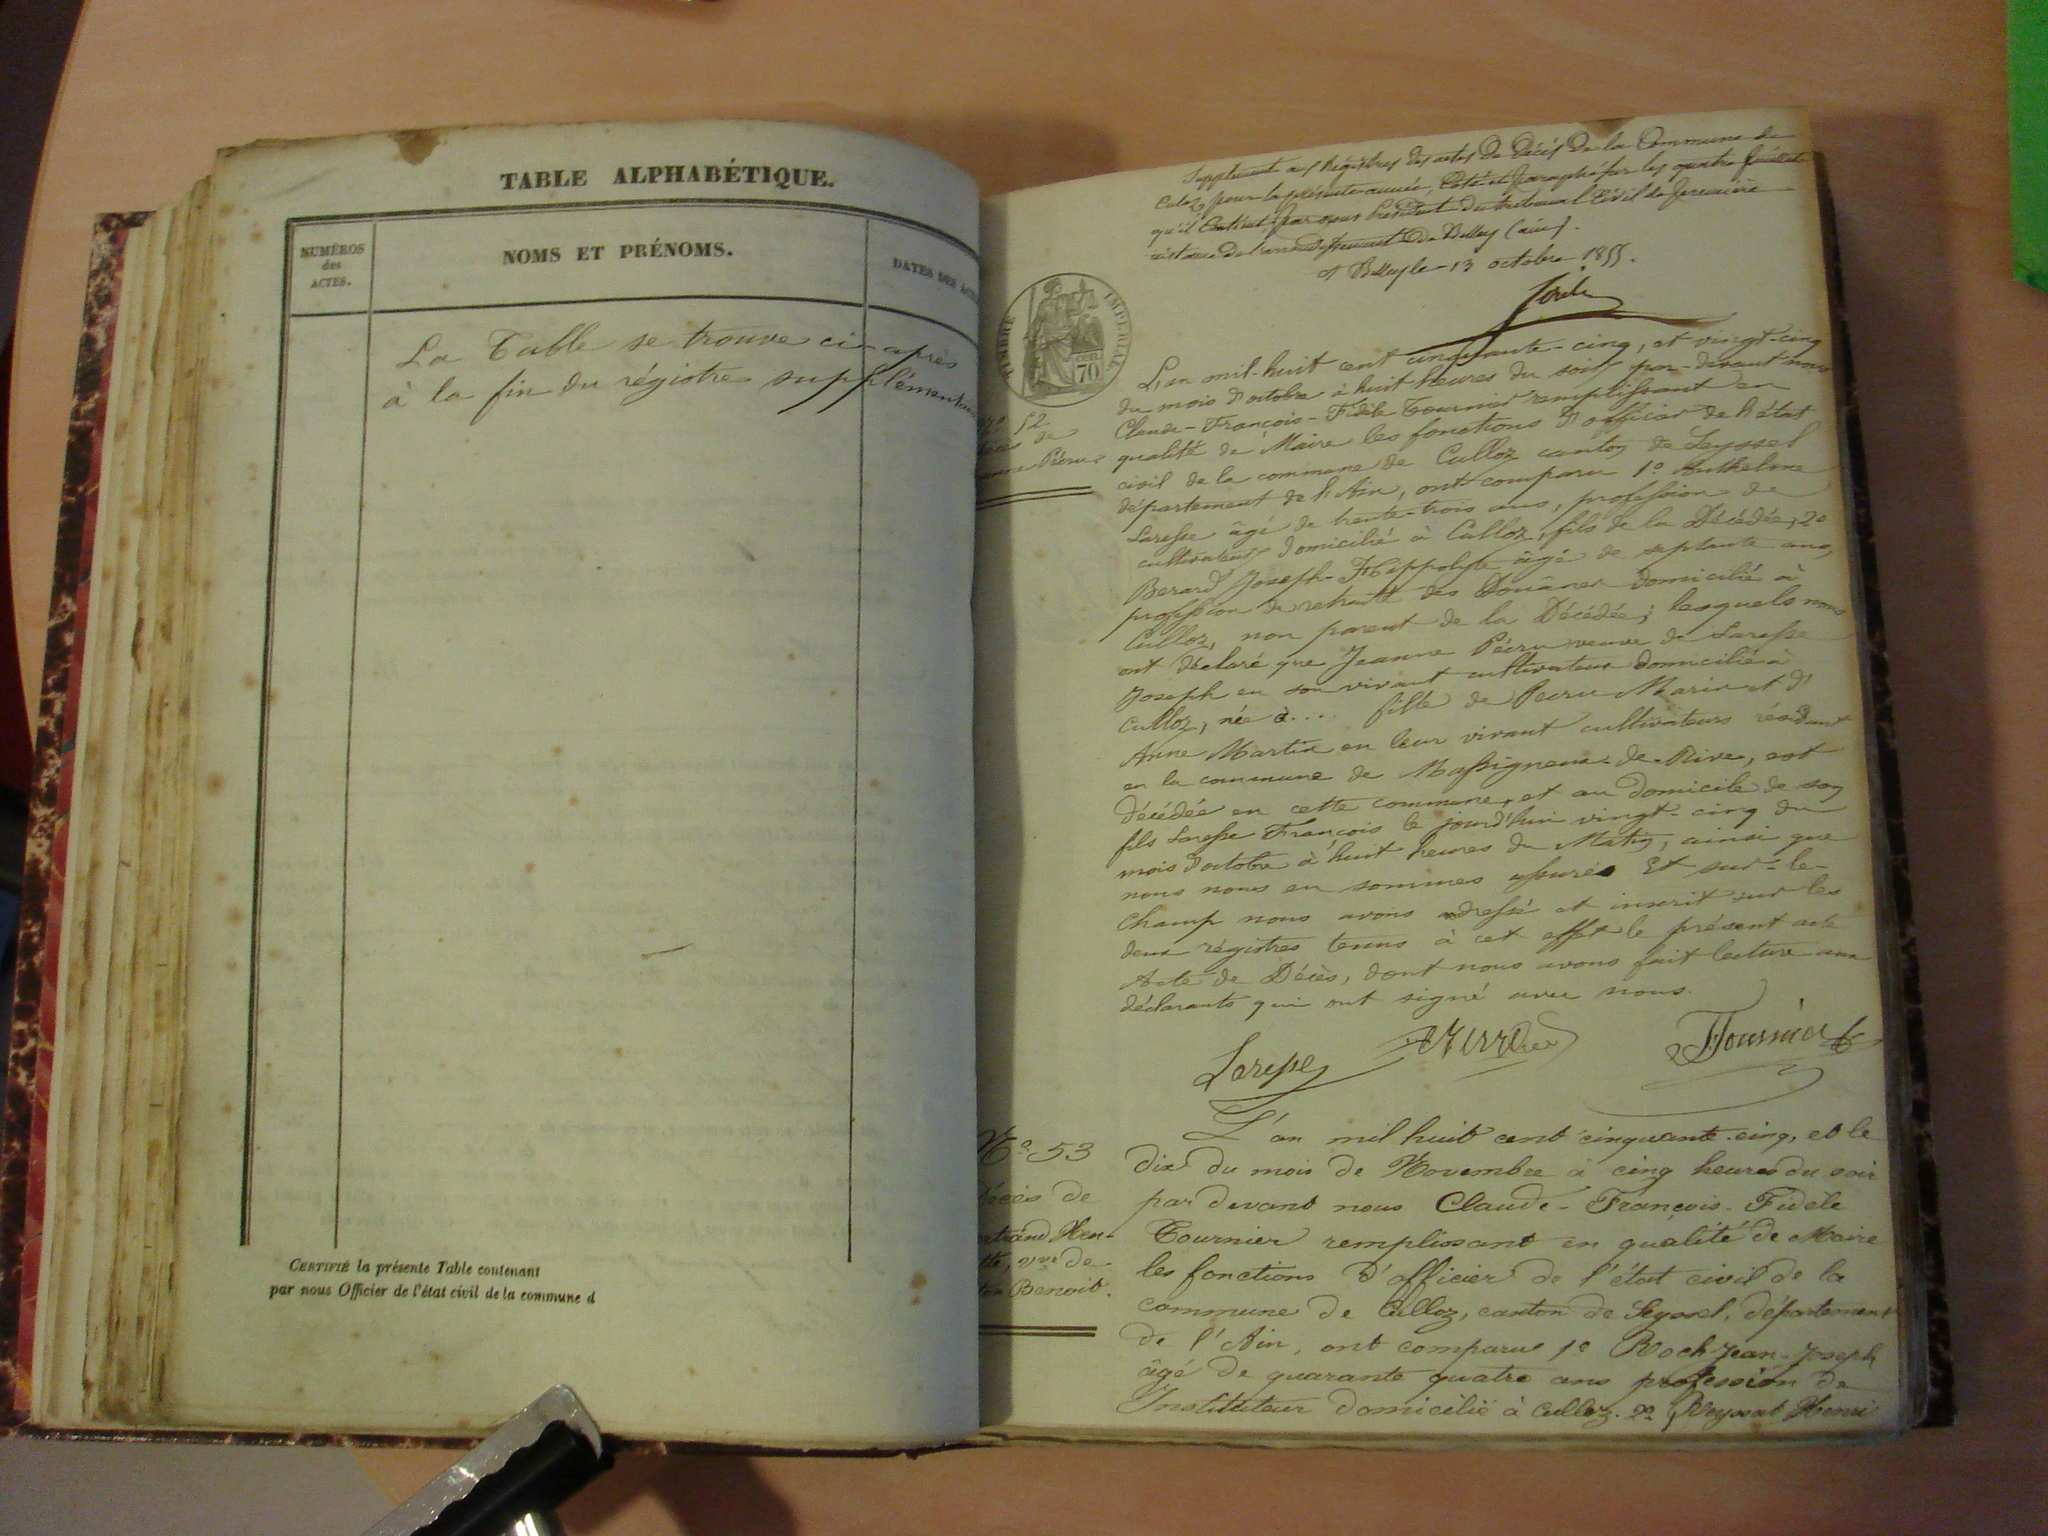 TABLE ALPHABÉTIQUE.
NUMÉROS
des
ACTES.
NOMS ET PRÉNOMS.
DATES DES
La Table se trouve ci-après
à la fin du régistre supplémentaire
CERTIFIÉ la présente Table contenant
par nous Officier de l'état civil de la commune d
Supplement aux Registres des actes de Décès de la Commune de
Culoz pour la présente année, Coté et paraphé par les quatre feuillets
qu'il Contient, par nous President du tribunal Civil de premiere
instance de l'arrondissement de Belley (ain).
A Belley le 13 octobre 1855.
TIMBRE IMPÉRIAL
70
52
de
Pécru
L'an mil-huit cent cinquante-cinq, et vingt-cinq
du mois d'octobre à huit heures du soir par-devant nous
Claude-François-Fidèle Tournier remplissant en
qualité de Maire les fonctions d'officier de l'état
civil de la commune de Culloz canton de Seyssel
département de l'Ain, ont comparu 1o Anthelme
Laresse âgé de trente-trois ans, profession de
cultivateur domicilié à Culloz, fils de la Décédée, 2o
Berard Joseph-Hippolyte âgé de septante ans,
profession de retraité des Douânes domicilié à
Culloz, non parent de la Décédée; lesquels nous
ont déclaré que Jeanne Pécru veuve de Laresse
Joseph en son vivant cultivateur domicilié à
Culloz, née à.... fille de Pecru Marin et d'
Anne Martin en leur vivant cultivateurs résidant
en la commune de Massignieu-de-Rive, est
décédée en cette commune, et au domicile de son
fils Laresse François le jourd'hui vingt-cinq du
mois d'octobre à huit heures du Matin, ainsi que
nous nous en sommes assurés Et sur-le-
champ nous avons adressé et inscrit sur les
deux régistres tenus à cet effet le présent acte
Acte de Décès, dont nous avons fait lecture aux
déclarants qui ont signé avec nous.
Laresse Tournier
No 53
Décès de
Hen-
tte, vve de
Benoit.
L'an mil huit cent cinquante-cinq, et le
dix du mois de Novembre à cinq heures du soir
par devant nous Claude-François-Fidèle
Tournier remplissant en qualité de Maire
les fonctions d'officier de l'état civil de la
commune de Culloz, canton de Seyssel, département
de l'Ain, ont comparus 1o Roch Jean-Joseph
âgé de quarante quatre ans profession de
Instituteur domicilié à Culloz. 2o Reyssat Henri